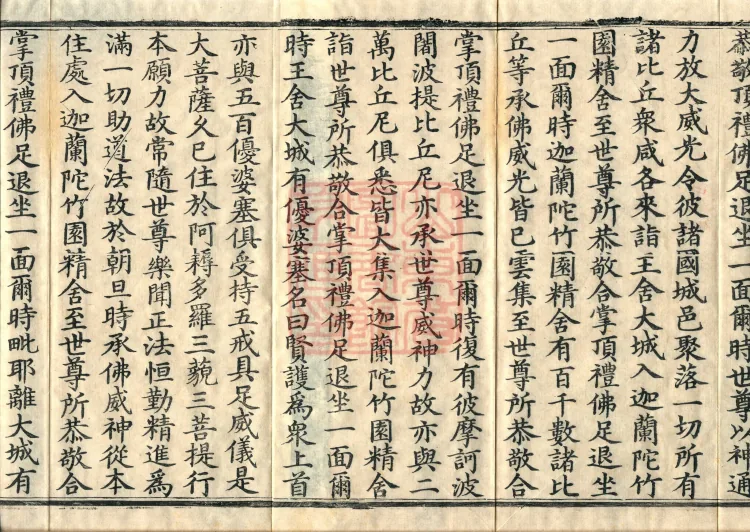 恭敬頂禮佛足退坐一面爾時世尊以神通
力放大威光令彼諸國城邑聚落一切所有
諸比丘衆咸各來詣王舍大城入迦蘭陀竹
園精舍至世尊所恭敬合掌頂禮佛足退坐
一面爾時迦蘭陀竹園精舍有百千數諸比
丘等承佛威光皆已雲集至世尊所恭敬合
掌頂禮佛足退坐一面爾時復有彼摩訶波
闍波提比丘尼亦承世尊威神力故亦與二
萬比丘尼俱悉皆大集入迦蘭陀竹園精舍
詣世尊所恭敬合掌頂禮佛足退坐一面爾
時王舍大城有優婆塞名曰賢護爲衆上首
亦與五百優婆塞俱受持五戒具足威儀是
大菩薩久已住於阿耨多羅三藐三菩提行
本願力故常隨世尊樂聞正法恒勤精進爲
滿一切助道法故於朝旦時承佛威神從本
住處入迦蘭陀竹園精舍至世尊所恭敬合
掌頂禮佛足退坐一面爾時毗耶離大城有